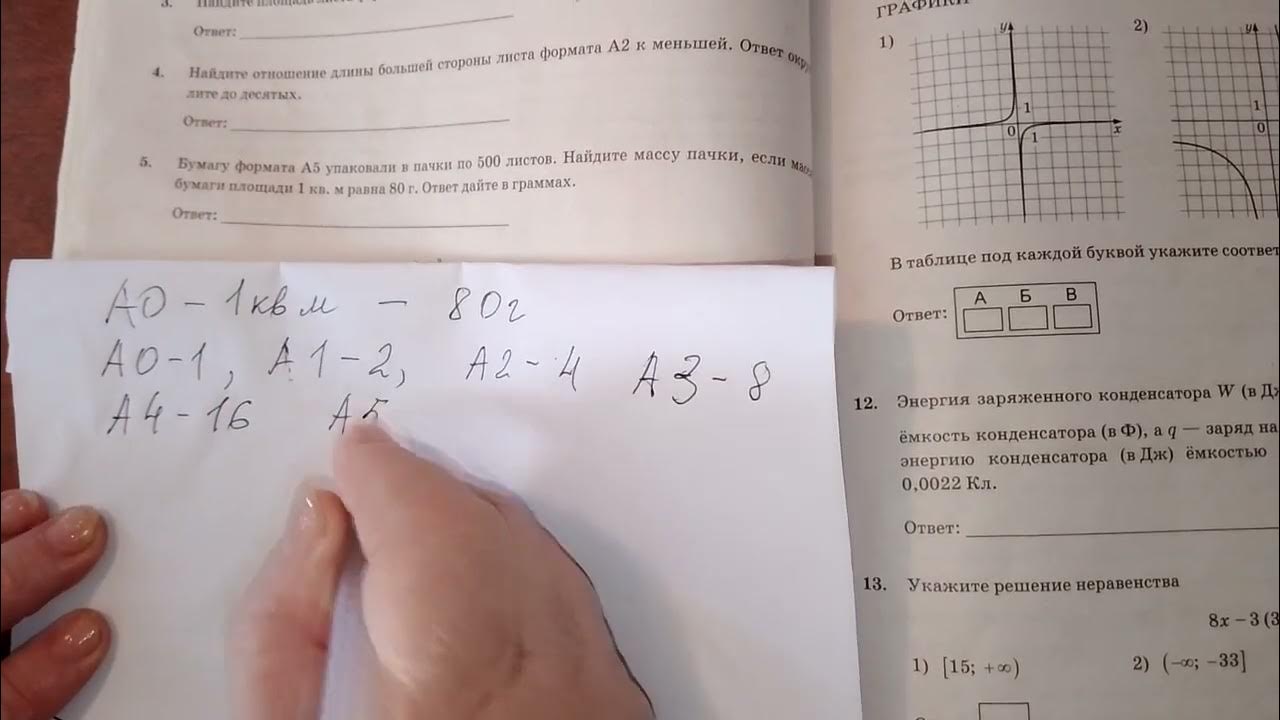 3.
Ответ:
4. Найдите отношение длины большей стороны листа формата А2 к меньшей. Ответ окру
лите до десятых.
Ответ:
5. Бумагу формата А5 упаковали в пачки по 500 листов. Найдите массу пачки, если масс
бумаги площади 1 кв. м равна 80 г. Ответ дайте в граммах.
Ответ:
А0 – 1 кв м – 80г
А0-1, А1-2, А2-4 А3-8
А4-16 А5
ГРАФИКИ
1) y 1 0 1 x
2) y 1 0
В таблице под каждой буквой укажите соответ
А Б В
Ответ:
12. Энергия заряженного конденсатора W (в Дж
ёмкость конденсатора (в Ф), а q — заряд на
энергию конденсатора (в Дж) ёмкостью
0,0022 Кл.
Ответ:
13. Укажите решение неравенства
8x – 3(3
1) [15; +∞) 2) (–∞; –33]